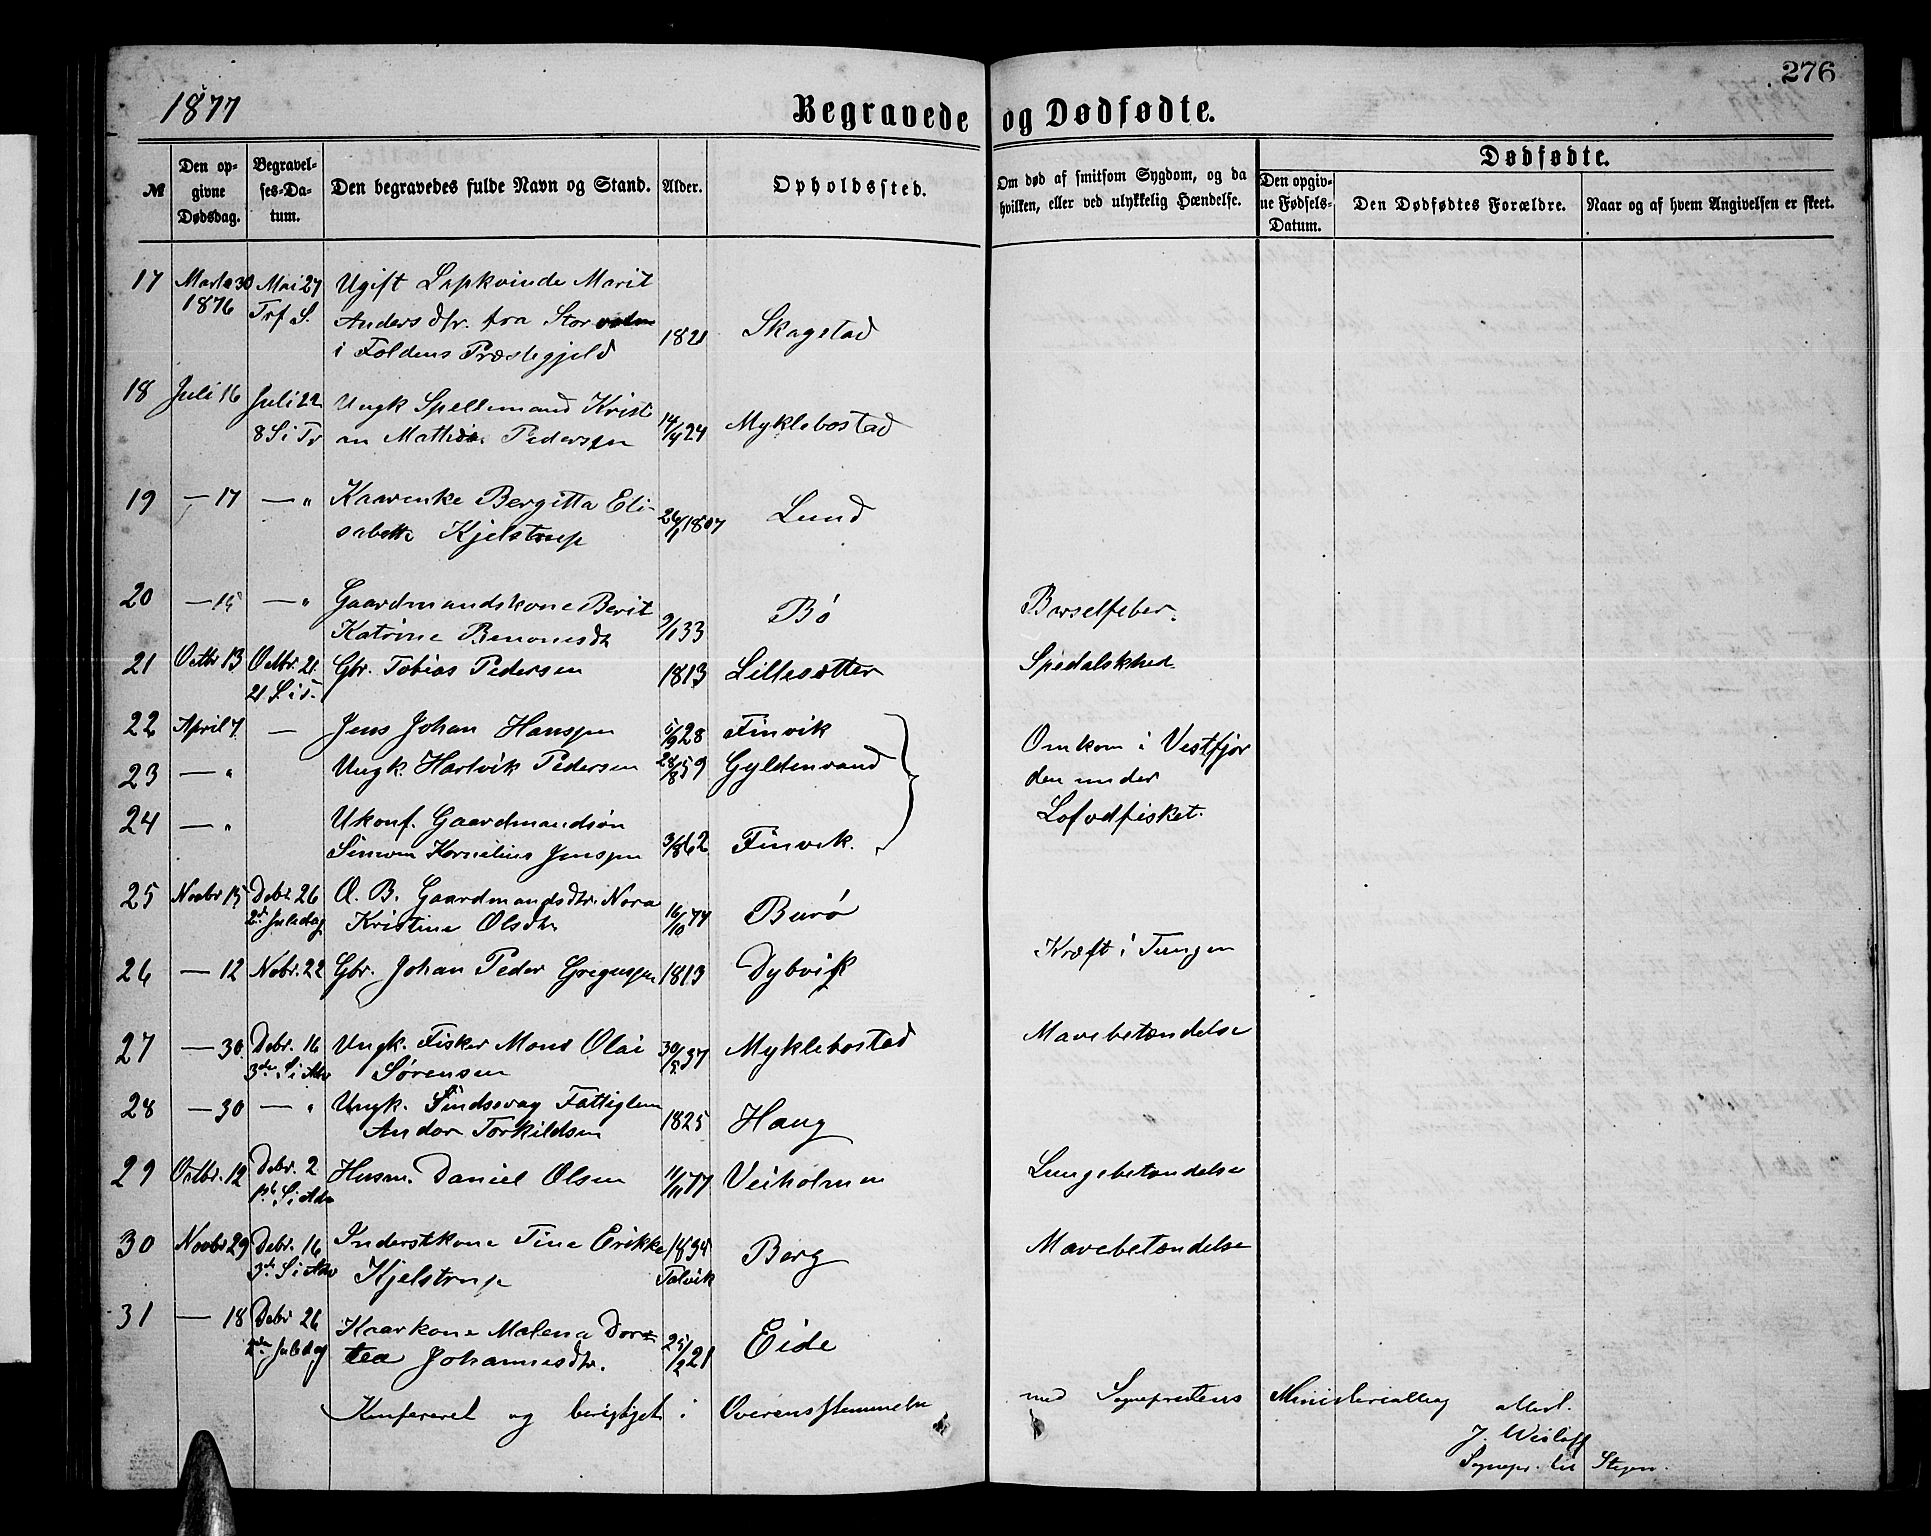 276
1877
Begravede og Dødfødte.
№
Den opgivne Dødsdag.
Begravelses-Datum.
Den begravedes fulde Navn og Stand.
Alder.
Opholdssted.
Om død af smitsom Sygdom, og da hvilken, eller ved ulykkelig Hændelse.
Dødfødte.
Den opgivne Fødsels-Datum.
Den Dødfødtes Forældre.
Naar og af hvem Angivelsen er skeet.
17 Marts 30 Mai 27 Ugift Lapkvinde Marit
1876 Trf S. Andersdtr. fra Stor 1821 Skagstad
i Foldens Præstegjeld
18 Juli 16 Juli 22 Ungk Spellemand Krist
8 S i Tr an Mathias Pederssen 14/4 24 Myklebostad
19 — 17 — " Kaarenke Bergitta Eli-
sabeth Kjelstrup 26/1 1807 Lund
20 — 15 — " Gaardmandskone Berit Bø Barselfeber.
Katrine Benonisdtr 9/1 33
21 Octbr 13 Octbr. 21 Gbr. Tobias Pedersen 1813 Lillesætter Spedalskhed
21 S. i T.
22 April 7 — Jens Johan Hanssen 5/9 28 Finvik Omkom i Vestfjor
23 — " Ungk. Hartvik Pedersen 28/8 59 Gyldenvand den under
24 — " Ukonf. Gaardmandsøn Lofodfisket.
Simon Kornelius Jenssen 3/8 62 Finvik.
25 Novbr 15 Debr. 26 O. B. Gaardmandsdtr. Nora
2d Juledag Kristine Olsdtr 16/10 77 Burø
26 — 12 Nobr. 22 Gbr. Johan Peder Gregussen 1813 Dybvik Kræft i Tungen
27 — 30 Debr. 16 Ungk. Fisker Mons Olai 30/5 37 Myklebostad Mavebetændelse
3de S i Adv Sørensen
28 — 30 — " Ungk. Sindssvag Fattiglem
Andor Torkildsen 1825 Haug "
29 Octbr. 12 Debr. 2 Husm. Daniel Olsen 11/11 77 Veiholmen Lungebetændelse
1st S i Adv
30 Novbr 29 Debr. 16 Inderstkone Tine Erikke 1834 Borg Mavebetændelse
3de S i Adv Kjelstrup Talvik
31 — 18 Debr 26 Kaarkone Malena Doro=
2den Juledag tea Johannesdtr. 25/2 21 Eide
Konfereret og berigtiget i Overensstemmelse med Sognepræstens Ministerialbog attest.
J. Wisløff
Sognepr. til Stegen.